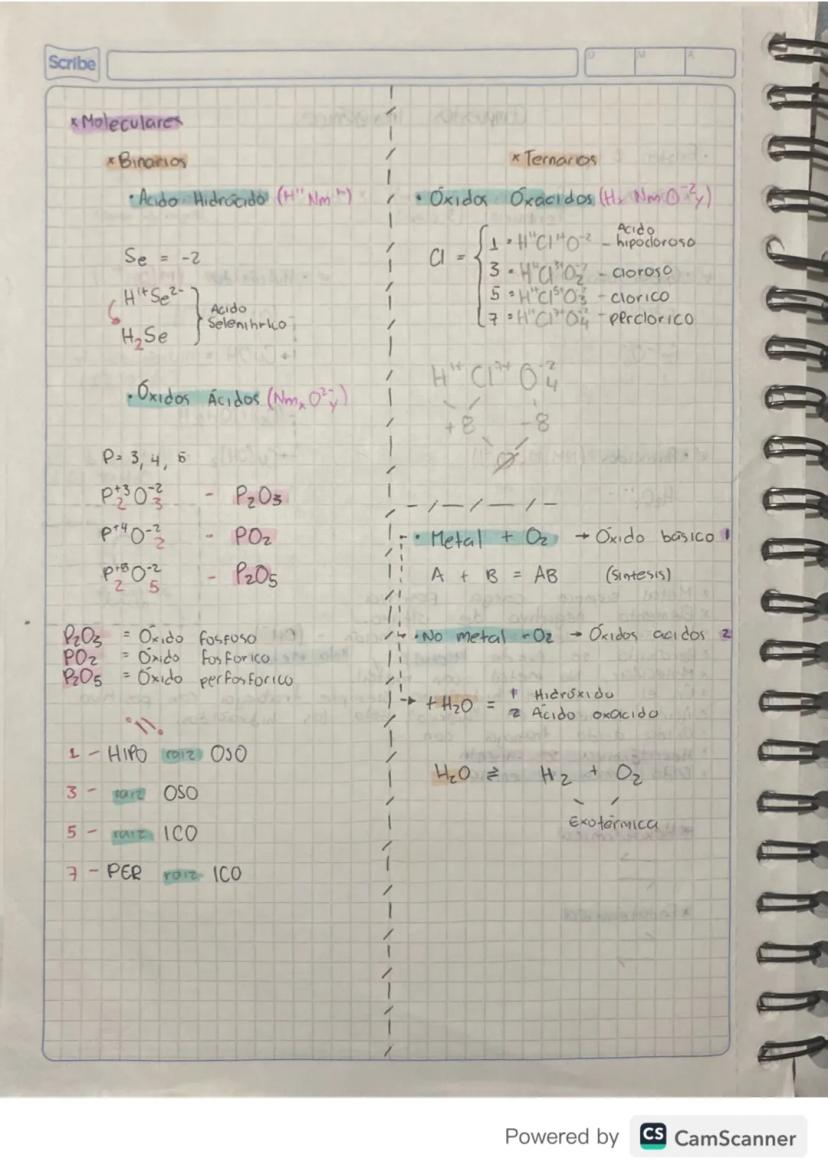 Scribe
D M A
* Moleculares
* Binarios
• Acido Hidrácido (H¹⁺ Nm¹⁻)
Se = -2
H¹⁺Se²⁻
H₂Se
Acido
Selenihrico
• Óxidos Ácidos (NmₓO²⁻y)
P = 3, 4, 5
P⁺³₂O⁻²₃ - P₂O₃
P⁺⁴O⁻²₂ - PO₂
P⁺⁵₂O⁻²₅ - P₂O₅
P₂O₃ = Óxido fosfoso
PO₂ = Óxido fosforico
P₂O₅ = Óxido perfosforico
1 - HIPO raiz OSO
3 - raiz OSO
5 - raiz ICO
7 - PER raiz ICO
* Ternarios
• Óxidos Óxacidos (Hₓ Nm O⁻²y)
Cl =
1 = H¹⁺Cl¹⁺O⁻² - Acido hipocloroso
3 = H¹⁺Cl³⁺O⁻²₂ - cloroso
5 = H¹⁺Cl⁵⁺O⁻²₃ - clorico
7 = H¹⁺Cl⁷⁺O⁻²₄ - perclorico
H¹⁺ Cl⁷⁺ O⁻²₄
+8 -8
0
• Metal + O₂ → Óxido básico 1
A + B = AB (sintesis)
• No metal + O₂ → Óxidos acidos 2
+ H₂O = 1 Hidróxido
2 Ácido oxacido
H₂O ⇌ H₂ + O₂
Exotérmica
Powered by CS CamScanner